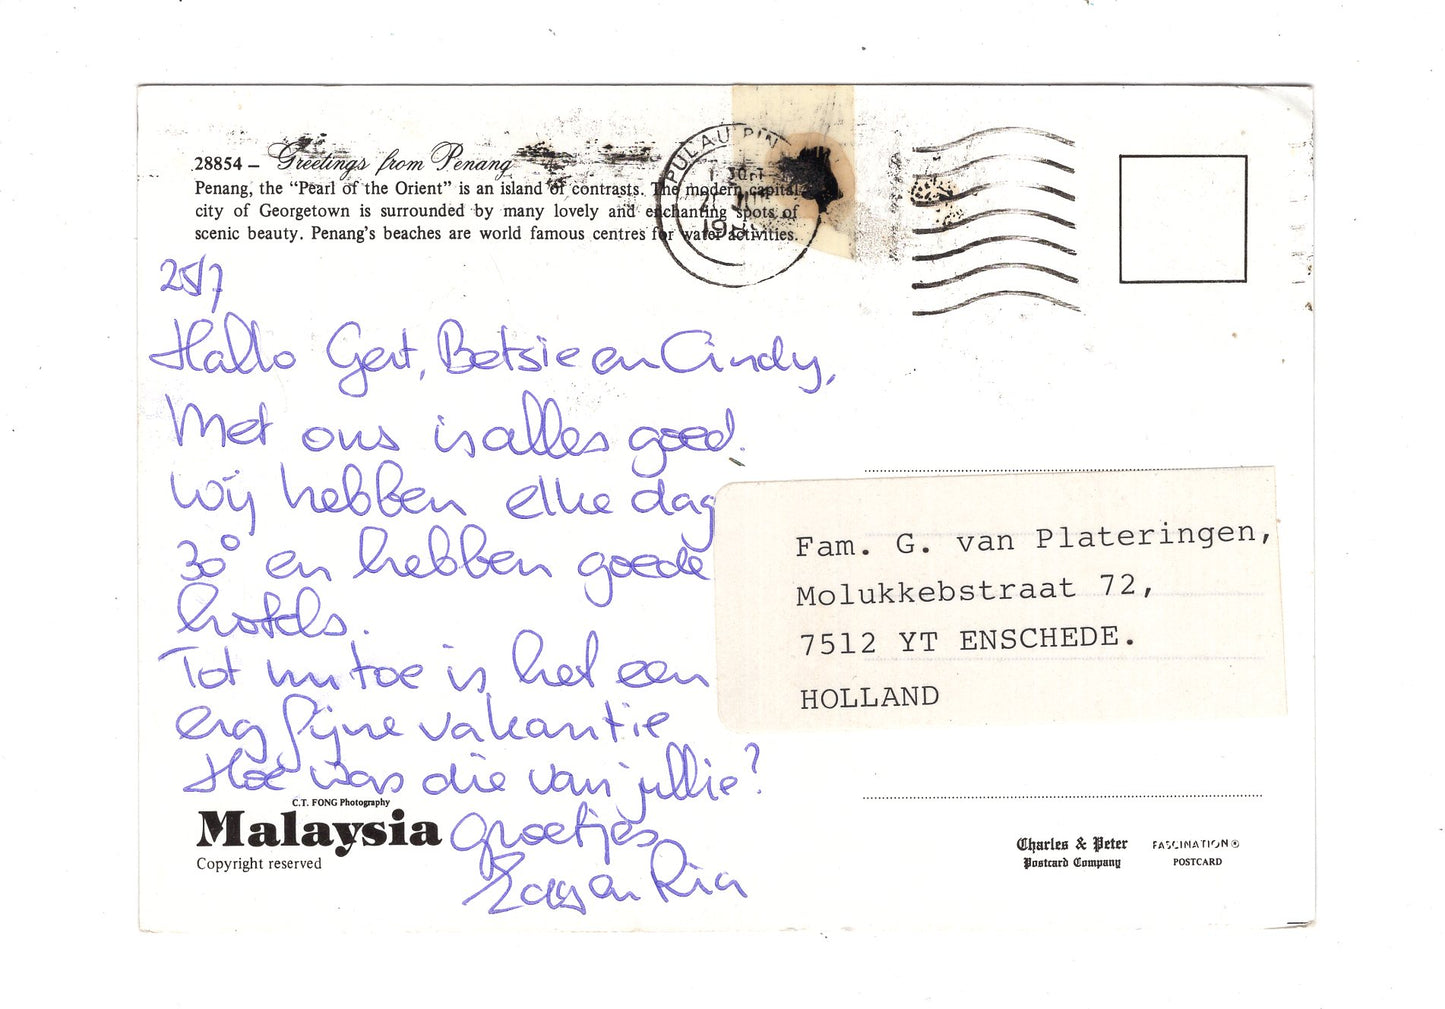 28854 – Greetings from Penang
Penang, the “Pearl of the Orient” is an island of contrasts. The modern capital
city of Georgetown is surrounded by many lovely and enchanting spots of
scenic beauty. Penang’s beaches are world famous centres for water activities.
PULAU PIN
25/7
Hallo Gert, Betsie en Cindy,
Met ons is alles goed.
Wij hebben elke dag
30° en hebben goede
hotels.
Tot nu toe is het een
erg fijne vakantie
Hoe was die van jullie?
Groetjes
en Ria
Fam. G. van Plateringen,
Molukkebstraat 72,
7512 YT ENSCHEDE.
HOLLAND
C.T. FONG Photography
Malaysia
Copyright reserved
Charles & Peter
Postcard Company
FASCINATION®
POSTCARD